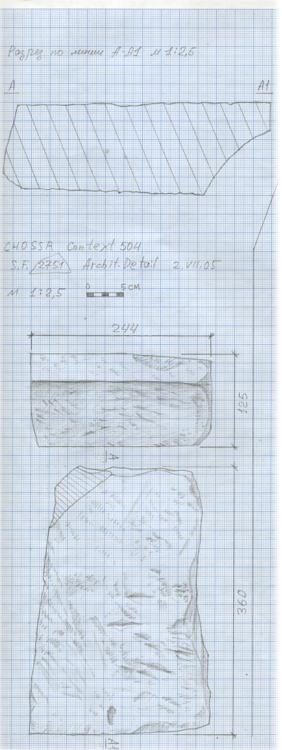 Разрез по линии А-А1 м 1:2,5
А А1
CHOSSA Context 504
S.F. 2751 Archit. Detail 2.VII.05
м 1:2,5 0 5 CM
244
125
А
360
А1